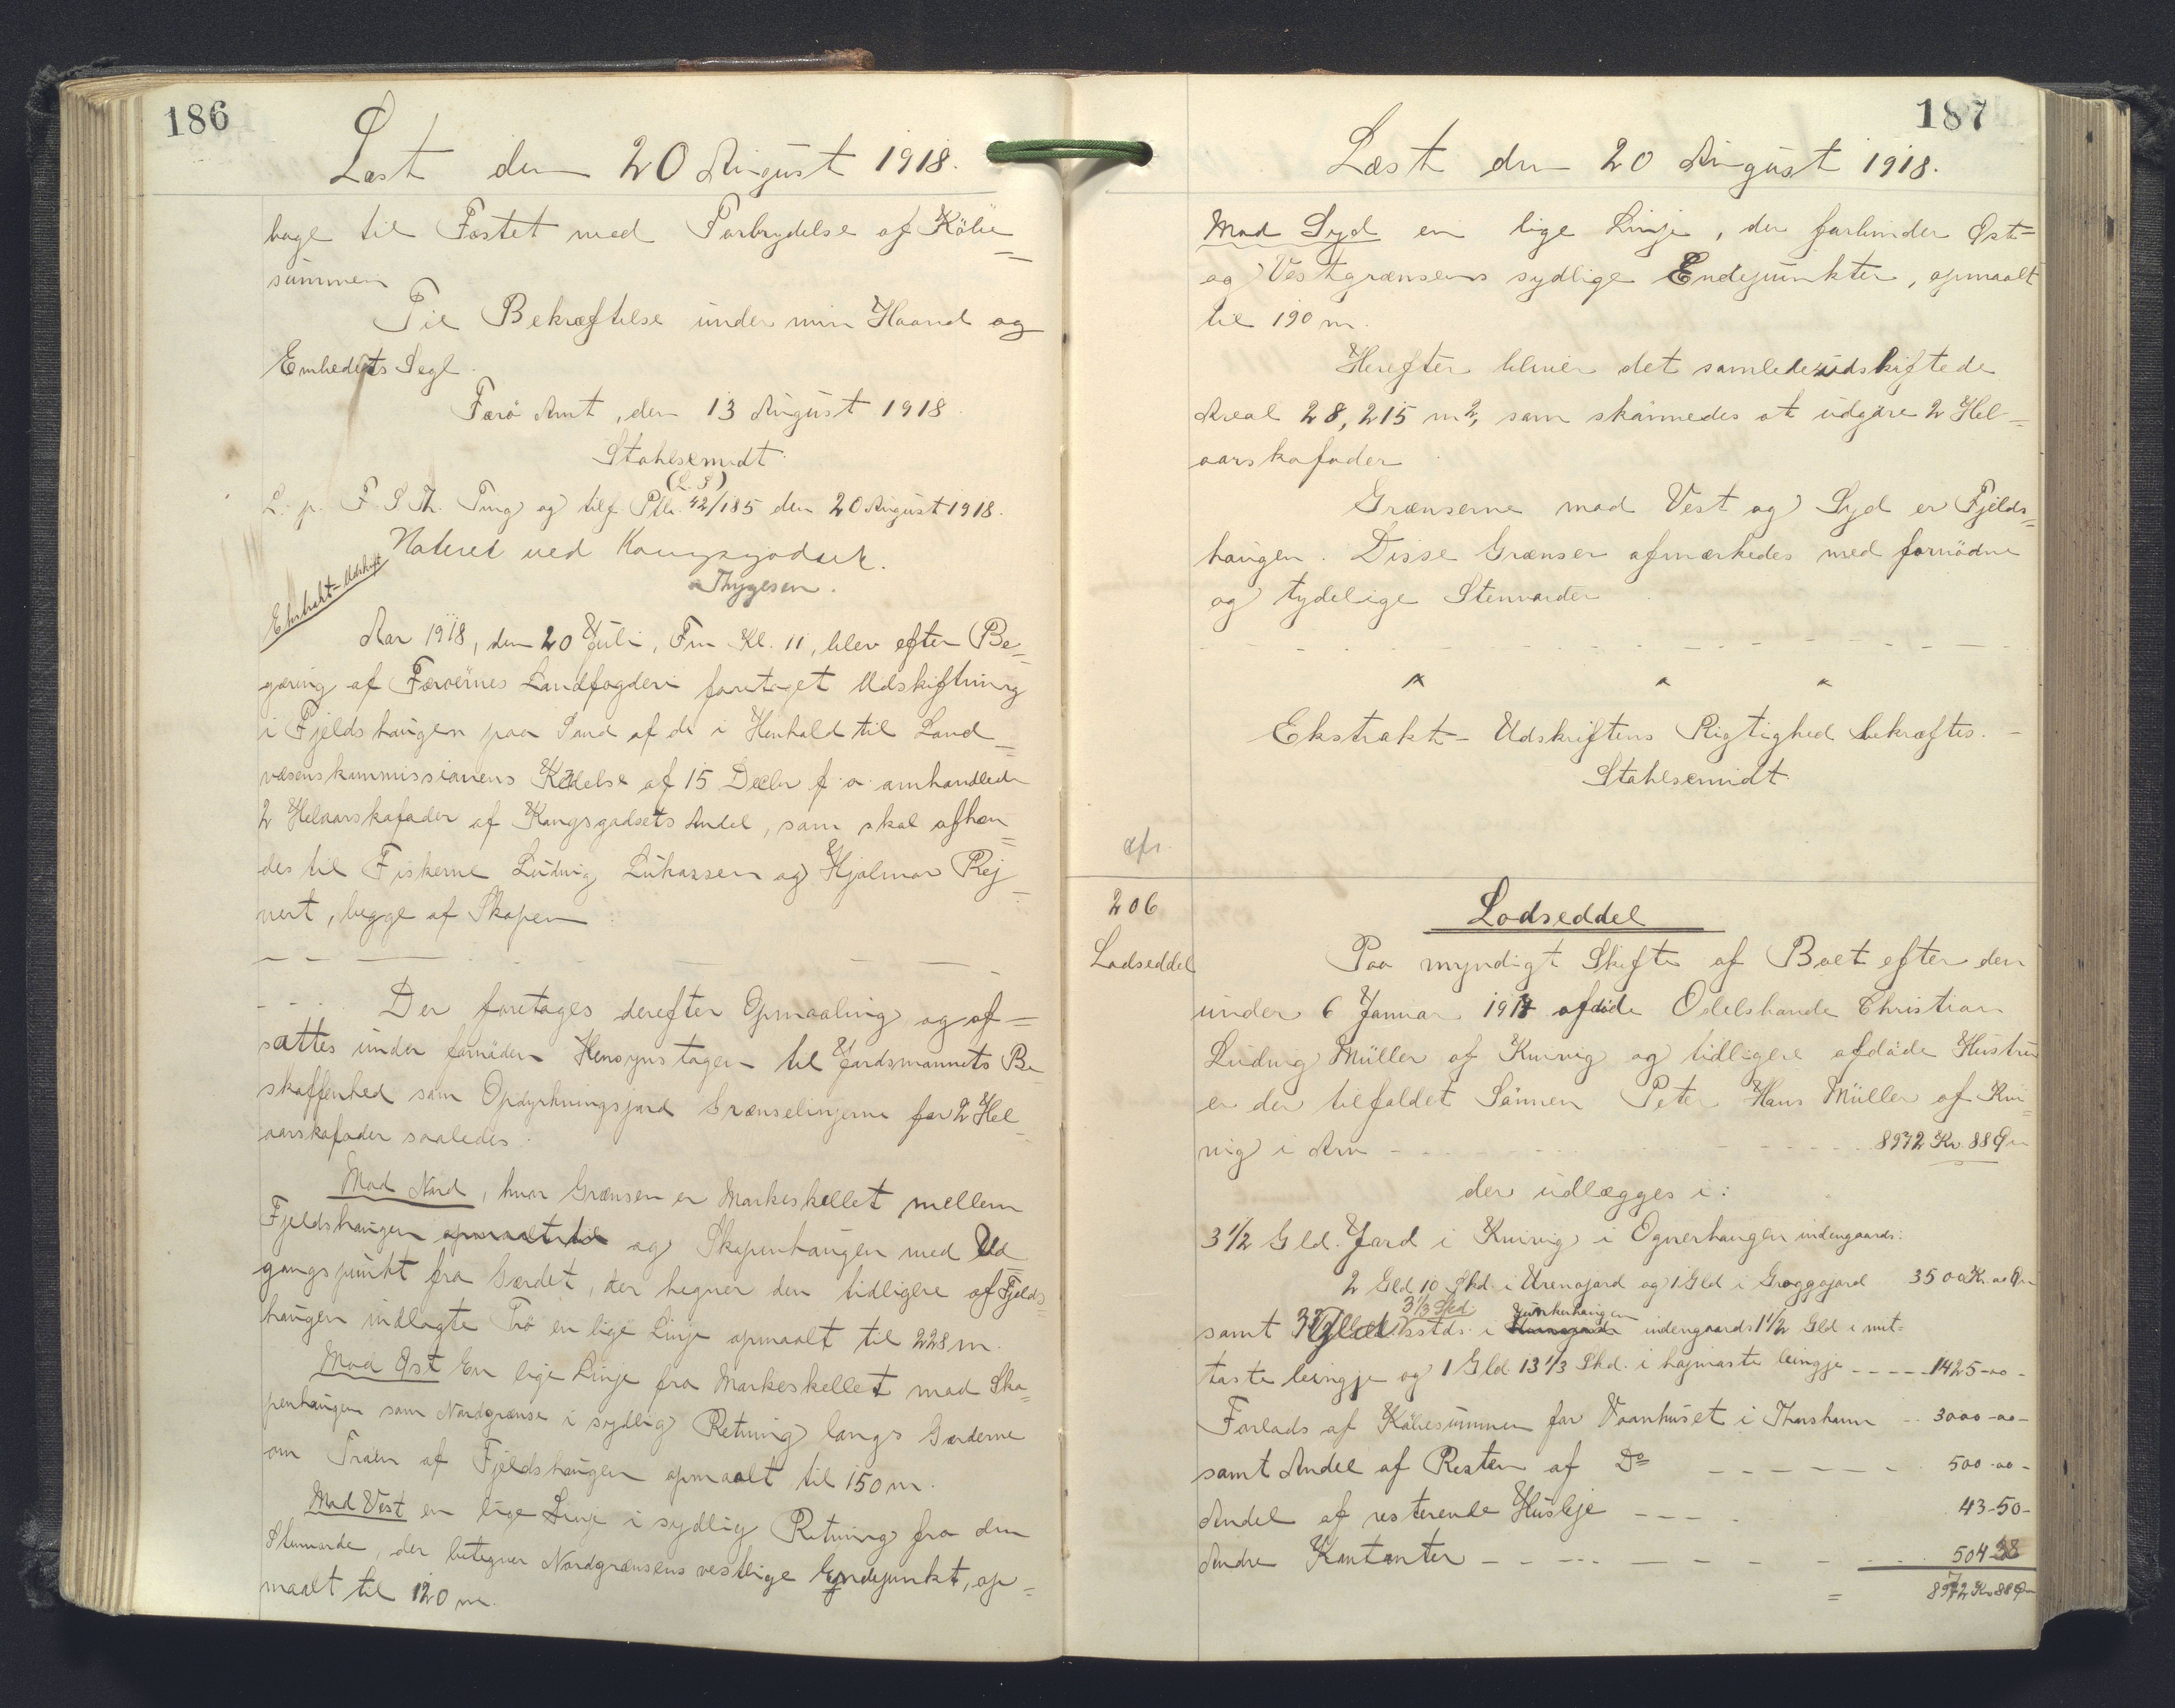 186
Læst den 20 August 1918.
bage til Fæstet med Forbrydelse af Købe=
summen
Til Bekræftelse under min Haand og
Embedets Segl.
Færø Amt, den 13 August 1918
Stahlsemidt
(L. S)
L. p. F. S. Th. Ting og tilf. Ptb. 42/185 den 20 August 1918.
Noteret ved Kongsgodset.
Thygesen.
Ekstrakt-Udskrift
Aar 1918, den 20 Juli, Fm Kl. 11, blev efter Be=
gæring af Færøernes Landfogderi foretaget Udskiftning
i Fjeldshaugen paa Sand af de i Henhold til Land=
væsenskommissionens Kedelse af 15 Decbr f. a. omhandlede
2 Helaarskofoder af Kongsgodsets Andel, som skal afhæn=
des til Fiskerne Ludvig Lukassen og Hjalmar Rej=
nert, begge af Skopen
Der foretages derefter Opmaaling og af=
sattes under fornöden Hensyns tagen til Jordsmonnets Be=
skaffenhed som Opdyrkningsjord Grænselinjerne for 2 Hel=
aarskofoder saaledes:
Mod Nord, hvor Grænsen er Markeskellet mellem
Fjeldshaugen opmaalt til og Skopenhaugen med Ud=
gangspunkt fra Gærdet, der hegner den tidligere af Fjelds=
haugen indlagte Trö en lige Linje opmaalt til 228 m.
Mod Øst En lige Linje fra Markeskellet mod Sko=
penhaugen som Nordgrænse i sydlig Retning langs Gærderne
om Tröen af Fjeldshaugen opmaalt til 150 m.
Mod Vest en lige Linje i sydlig Retning fra den
Stenvarde, der betegner Nordgrænsens vestlige Endepunkt, op=
maalt til 120 m.
187
Læst den 20 August 1918.
Mod Syd en lige Linje, der forbinder Öst=
og Vestgrænsens sydlige Endepunkter, opmaalt
til 190 m.
Herefter bliver det samlede udskiftede
Areal 28,215 m2, som skönnedes at udgöre 2 Hel=
aarskofoder
Grænserne mod Vest og Syd er Fjelds=
haugen. Disse Grænser afmærkedes med fornödne
og tydelige Stenvarder
Ekstrakt-Udskriftens Rigtighed bekræftes.
Stahlsemidt.
afs.
206
Lodseddel
Lodseddel
Paa myndigt Skifte af Boet efter den
under 6 Januar 1917 afdöde Odelsbonde Christian
Ludvig Müller af Kvivig og tidligere afdöde Hustru
er der tilfaldet Sönnen Peter Hans Müller af Kvi=
vig i Arv 8972 Kr. 88 Øre
der udlægges i:
3 1/2 Gld. Jord i Kvivig i Ognerhaugen indengaards:
2 Gld 10 Skd. i Urenajord og 1 Gld i Groggojord 3500 Kr. 00 Øre
samt 3 Gld 3 1/3 Skd. sstds. i Junkerhaugen indengaards 1 1/2 Gld i nut=
taste leingje og 1 Gld 13 1/3 Skd. i hojmaste leingje 1425-00-
Forlods af Köbesummen for Vaanhuset i Thorshavn 3000-00-
samt Andel af Resten af Do 500-00-
Andel af resterende Husleje 43-50-
Andre Kontanter 504-38
= 8972 Kr 88 Øre